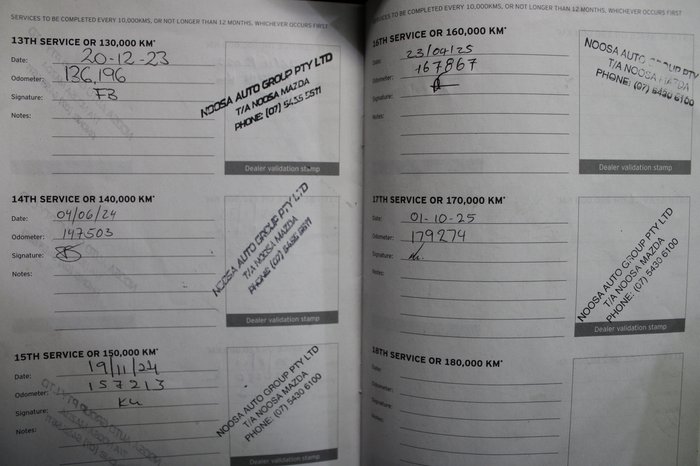 SERVICES TO BE COMPLETED EVERY 10,000KMS, OR NOT LONGER THAN 12 MONTHS, WHICHEVER OCCURS FIRST
13TH SERVICE OR 130,000 KM*
Date: 20-12-23
Odometer: 136,196
Signature: FB
Notes:
NOOSA AUTO GROUP PTY LTD
T/A NOOSA MAZDA
PHONE: (07) 5455 5511
Dealer validation stamp
14TH SERVICE OR 140,000 KM*
Date: 04/06/24
Odometer: 147503
Signature:
Notes:
NOOSA AUTO GROUP PTY LTD
T/A NOOSA MAZDA
PHONE: (07)
Dealer validation stamp
15TH SERVICE OR 150,000 KM*
Date: 19/11/24
Odometer: 157213
Signature:
Notes:
NOOSA AUTO GROUP PTY LTD
T/A NOOSA MAZDA
PHONE: (07) 5430 6100
SERVICES TO BE COMPLETED EVERY 10,000KMS, OR NOT LONGER THAN 12 MONTHS, WHICHEVER OCCURS FIRST
16TH SERVICE OR 160,000 KM*
Date: 23/04/25
Odometer: 167867
Signature:
Notes:
NOOSA AUTO GROUP PTY LTD
T/A NOOSA MAZDA
PHONE: (07) 5430 6100
Dealer validation stamp
17TH SERVICE OR 170,000 KM*
Date: 01-10-25
Odometer: 179274
Signature:
Notes:
NOOSA AUTO GROUP PTY LTD
T/A NOOSA MAZDA
PHONE: (07) 5430 6100
Dealer validation stamp
18TH SERVICE OR 180,000 KM*
Date:
Odometer:
Signature:
Notes: